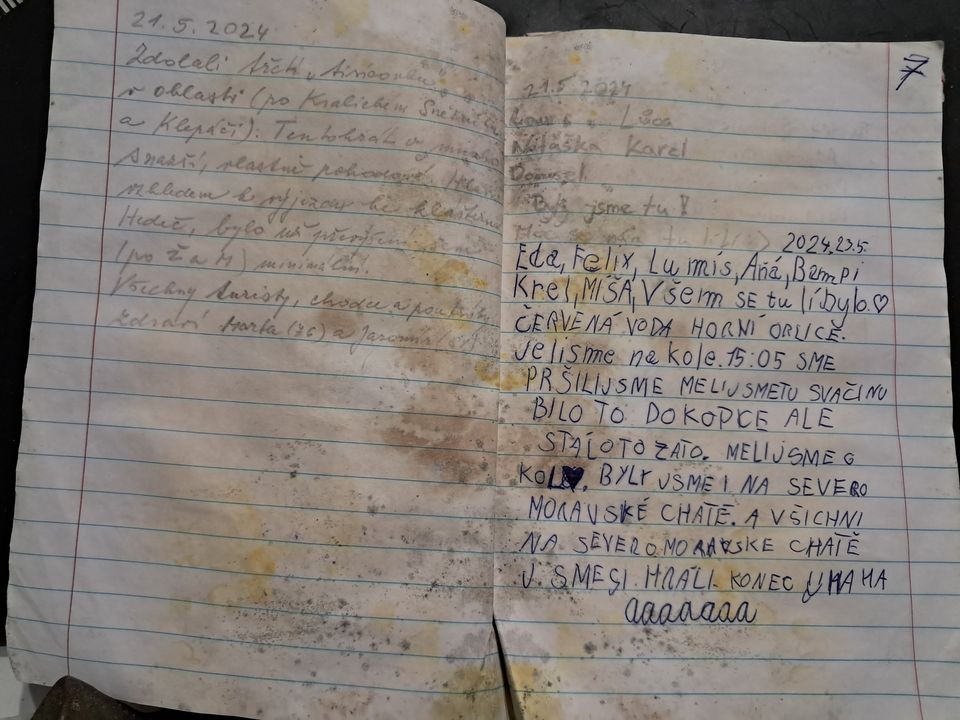 21.5.2024
Zdolali třetí
v oblasti (po Kralickém Sněžníku
a Klepáči). Tentokrát
snazší, vlastně pohodová
vzhledem k výjezdu ke klášteru
Hedeč, bylo už převýšení
(po Ž a M) minimální.
Všechny turisty, chodce a poutníky
zdraví Marta (76) a Jaromír
7
21.5 2024
Karel
Byly jsme tu!
2024,23.5.
Eda, Felix, Lumís, Aňá, Bampi
Krel, MÍŠA, Všem SE tu líbylo♡
ČERVENÁ VODA HORNÍ ORLICĚ.
Jelisme na kole. 15:05 SME
PRŠILIJSME MELIJSMETU SVAČINU
BILO TO DOKOPCE ALE
STÁLOTO ZATO. MELIJSME G
KOL♥. BYLY JSME I NA SEVERO
MORAVSKÉ CHATĚ. A VŠICHNI
NA SEVEROMORAVSKE CHATĚ
J SMESI HRÁLI. KONEC UHAHA
aaaaaaa